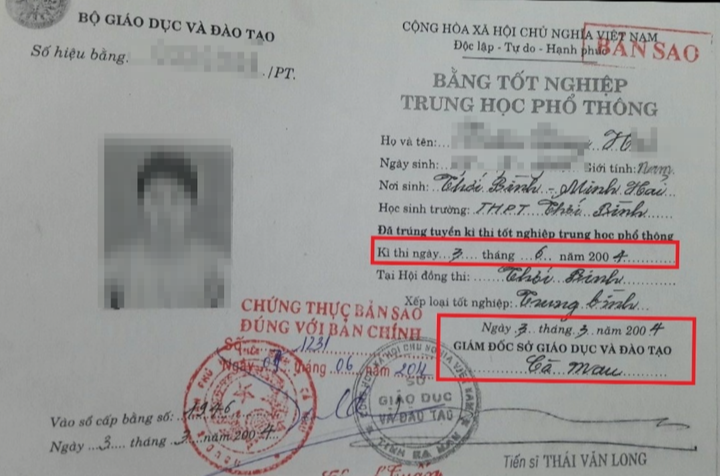 BỘ GIÁO DỤC VÀ ĐÀO TẠO
Số hiệu bằng: /PT.
CỘNG HÒA XÃ HỘI CHỦ NGHĨA VIỆT NAM
Độc lập - Tự do - Hạnh phúc
BẢN SAO
BẰNG TỐT NGHIỆP
TRUNG HỌC PHỔ THÔNG
Họ và tên:
Ngày sinh: Giới tính: Nam
Nơi sinh: Thới Bình - Minh Hải
Học sinh trường: THPT Thới Bình
Đã trúng tuyển kì thi tốt nghiệp trung học phổ thông
Kì thi ngày 3 tháng 6 năm 2004
Tại Hội đồng thi: Thới Bình
Xếp loại tốt nghiệp: Trung bình
Ngày 3 tháng 3 năm 2004
GIÁM ĐỐC SỞ GIÁO DỤC VÀ ĐÀO TẠO
Cà Mau
CHỨNG THỰC BẢN SAO
ĐÚNG VỚI BẢN CHÍNH
Số 1231
Ngày 09 tháng 06 năm 2011
SỞ
GIÁO DỤC
VÀ ĐÀO TẠO
Vào sổ cấp bằng số: 1946
Ngày 3 tháng 3 năm 2004
Tiến sĩ THÁI VĂN LONG